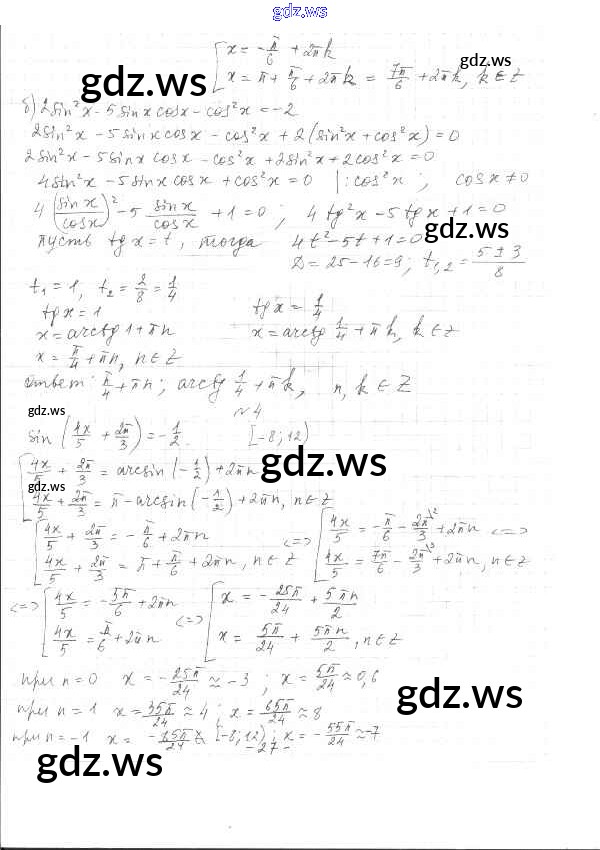 gdz.ws
[ x = -π/6 + 2πk
x = π + π/6 + 2πk = 7π/6 + 2πk, k ∈ Z
gdz.ws
gdz.ws
б) 2sin²x - 5sinx cosx - cos²x = -2
2sin²x - 5sinx cosx - cos²x + 2(sin²x + cos²x) = 0
2sin²x - 5sinx cosx - cos²x + 2sin²x + 2cos²x = 0
4sin²x - 5sinx cosx + cos²x = 0 |: cos²x ; cosx ≠ 0
4(sinx/cosx)² - 5 sinx/cosx + 1 = 0 ; 4tg²x - 5tgx + 1 = 0
gdz.ws
пусть tgx = t, тогда 4t² - 5t + 1 = 0
D = 25 - 16 = 9; t₁,₂ = (5 ± 3)/8
t₁ = 1, t₂ = 2/8 = 1/4
tgx = 1 tgx = 1/4
x = arctg1 + πn x = arctg 1/4 + πk, k ∈ Z
x = π/4 + πn, n ∈ Z
ответ: π/4 + πn; arctg 1/4 + πk, n, k ∈ Z
gdz.ws
№4
sin(4x/5 + 2π/3) = -1/2. [-8; 12)
gdz.ws
[ 4x/5 + 2π/3 = arcsin(-1/2) + 2πn
gdz.ws
4x/5 + 2π/3 = π - arcsin(-1/2) + 2πn, n ∈ Z
[ 4x/5 + 2π/3 = -π/6 + 2πn <=> [ 4x/5 = -π/6 - 2π/3 + 2πn <=>
4x/5 + 2π/3 = π + π/6 + 2πn, n ∈ Z 4x/5 = 7π/6 - 2π/3 + 2πn, n ∈ Z
<=> [ 4x/5 = -5π/6 + 2πn <=> [ x = -25π/24 + 5πn/2
4x/5 = π/6 + 2πn x = 5π/24 + 5πn/2, n ∈ Z
при n = 0 x = -25π/24 ≈ -3 ; x = 5π/24 ≈ 0,6
gdz.ws
при n = 1 x = 35π/24 ≈ 4 ; x = 65π/24 ≈ 8
при n = -1 x = -85π/24 ∉ [-8; 12) ; x = -55π/24 ≈ -7
- 27 -
gdz.ws
gdz.ws